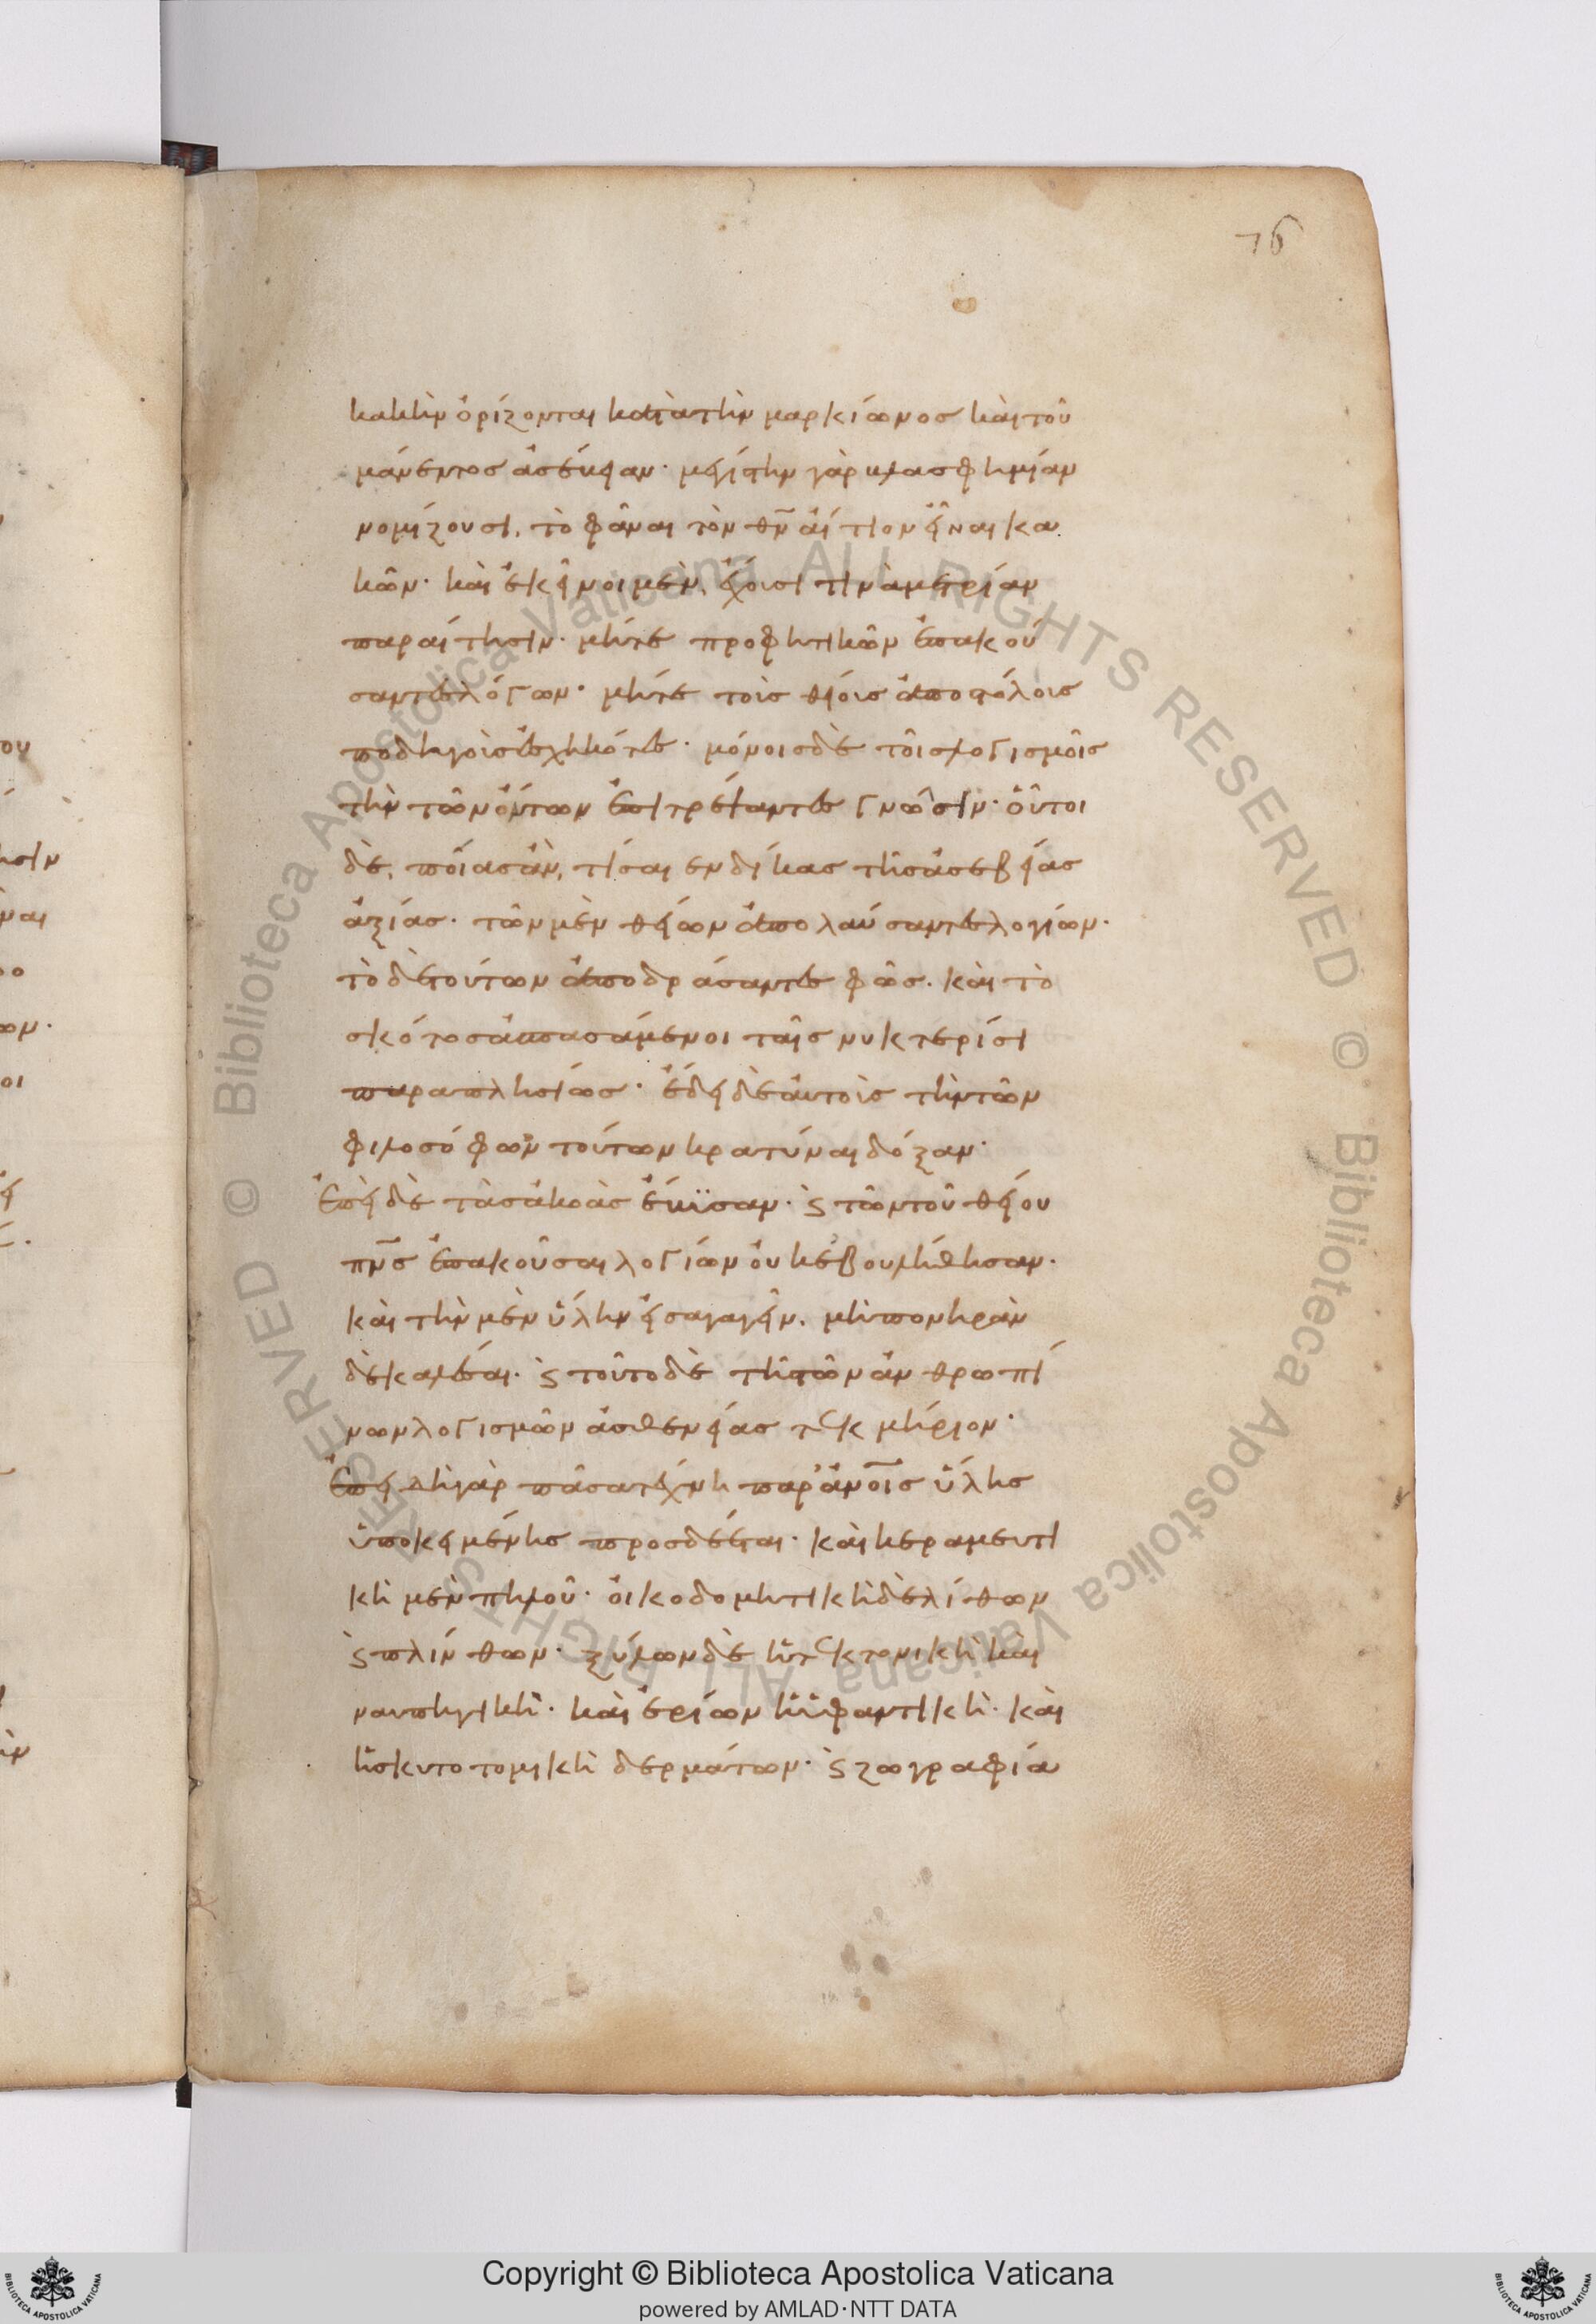 76
κακὴν ὁρίζονται κατὰ τὴν μαρκίωνος καὶ τοῦ
μάνεντος ἀσέβειαν· μεγίστην γὰρ βλασφημίαν
νομίζουσι, τὸ φᾶναι τὸν θν̅ αἴτιον εἶναι κα
κῶν· καὶ ἐκεῖνοι μὲν, ἔχουσι τινὰ μετρίαν
παραίτησιν· μήτε προφητικῶν ἐπακού
σαντες λόγων· μήτε τοῖς θείοις ἀποστόλοις
ποδηγοῖς ἐσχηκότες· μόνοις δὲ τοῖς λογισμοῖς
τὴν τῶν ὄντων ἐπιτρέψαντες γνῶσιν· οὗτοι
δὲ, ποίας ἂν, τίσαιεν δίκας τῆς ἀσεβείας
ἀξίας· τῶν μὲν θείων ἀπολαύσαντες λογίων·
τὸ δὲ τούτων ἀποδράσαντες φῶς. καὶ τὸ
σκότος ἀσπασάμενοι ταῖς νυκτερίσι
παραπλησίως· ἔδει δὲ αὐτοὺς τὴν τῶν
φιλοσόφων τούτων κρατύναι δόξαν·
Ἐπεὶ δὲ τὰς ἀκοὰς ἔβυσαν· ϛ τῶν τοῦ θείου
πν̅ς ἐπακοῦσαι λογίων οὐκ ἐβουλήθησαν·
καὶ τὴν μὲν ὕλην εἰσαγαγεῖν. μὴ πονηρὰν
δὲ καλέσαι· ϛ τοῦτο δὲ τῆς τῶν ἀνθρωπί
νων λογισμῶν ἀσθενείας τεκμήριον·
Ἐπειδὴ γὰρ πᾶσα τέχνη παρ' ἀν̅οις ὕλης
ὑποκειμένης προσδέεται· καὶ κεραμευτι
κὴ μὲν πηλοῦ· οἰκοδομητικὴ δὲ λίθων
ϛ πλίνθων· ξύλων δὲ ἡ τεκτονικὴ καὶ
ναυπηγική· καὶ ἐρίων ἡ ὑφαντικὴ· καὶ
ἡ σκυτοτομικὴ δερμάτων· ϛ ζωγραφία
Copyright © Biblioteca Apostolica Vaticana
powered by AMLAD·NTT DATA